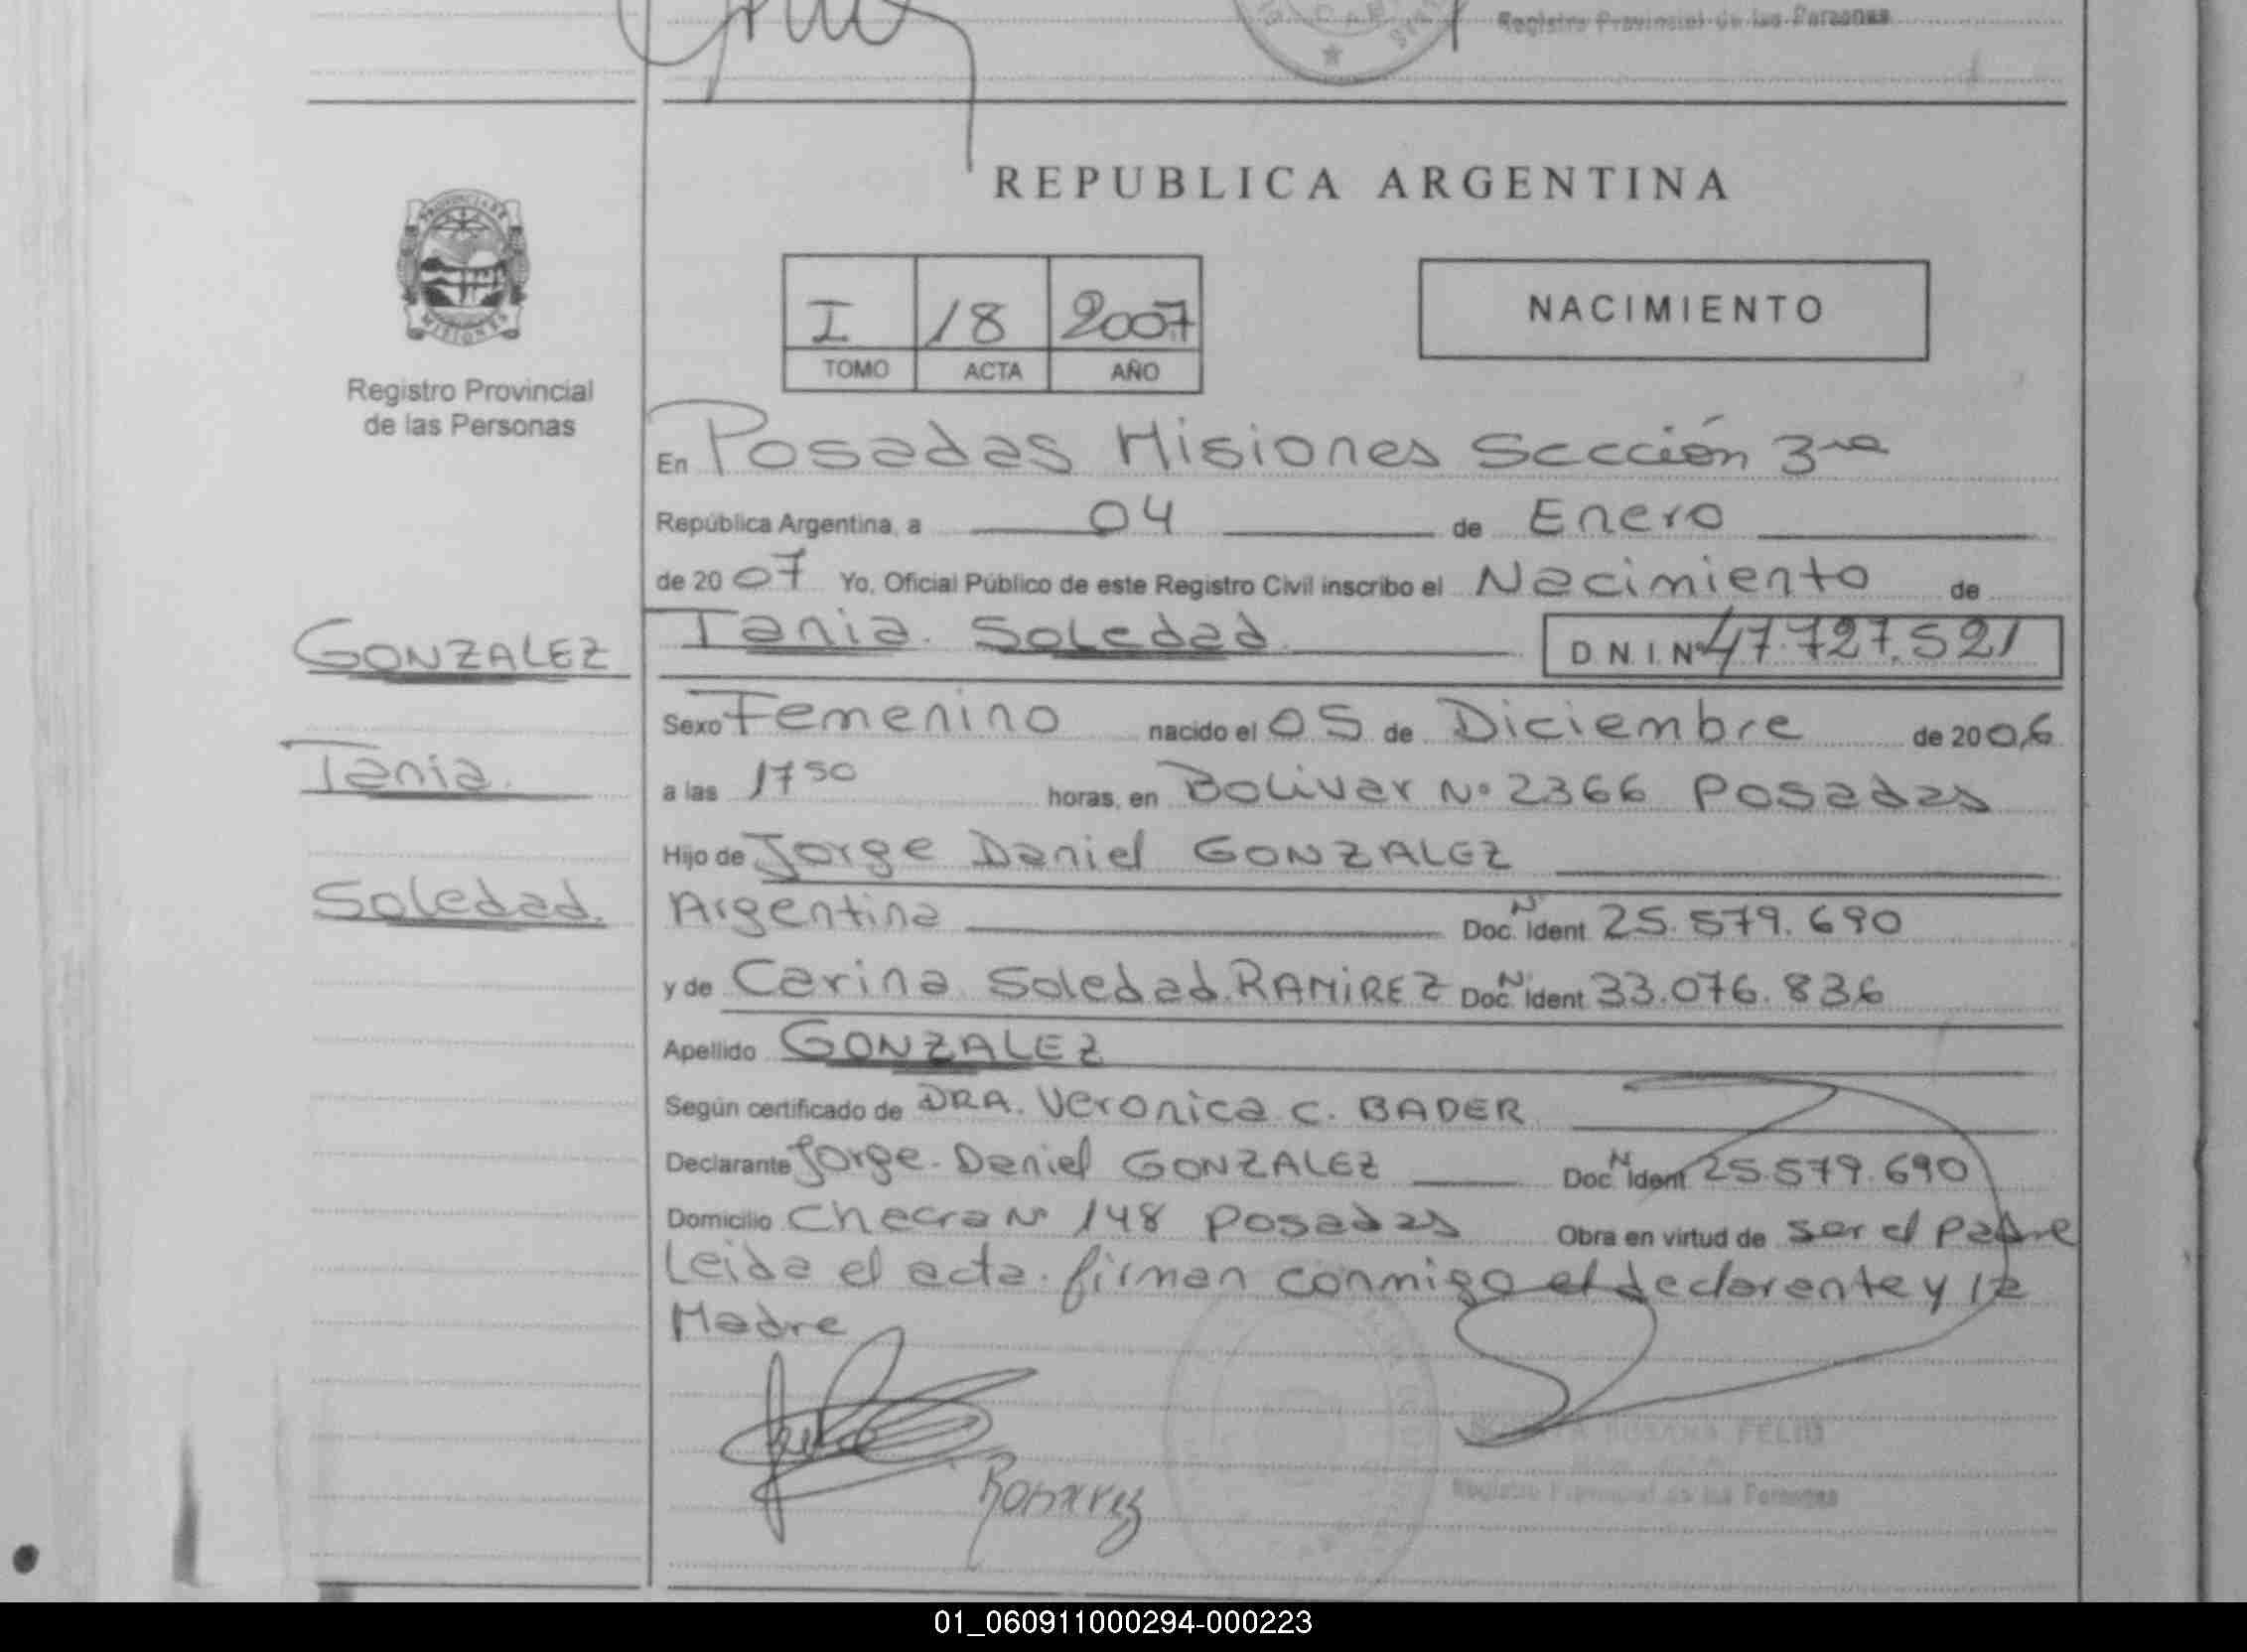 Registro Provincial de las Personas
REPUBLICA ARGENTINA
PROVINCIA DE
MISIONES
Registro Provincial
de las Personas
I 18 2007
TOMO ACTA AÑO
NACIMIENTO
En Posadas Misiones Sección 3ra
República Argentina, a 04 de Enero
de 2007 Yo, Oficial Público de este Registro Civil inscribo el Nacimiento de
Tania Soledad D N I Nº 47.727.521
GONZALEZ
Tania
Soledad
Sexo Femenino nacido el 05 de Diciembre de 2006
a las 17 50 horas, en Bolivar Nº 2366 Posadas
Hijo de Jorge Daniel GONZALEZ
Argentina Doc. Nº Ident 25.579.690
y de Carina Soledad RAMIREZ Doc. Nº Ident 33.076.836
Apellido GONZALEZ
Según certificado de DRA. Veronica C. BADER
Declarante Jorge Daniel GONZALEZ Doc. Nº Ident 25.579.690
Domicilio Chacra Nº 148 Posadas Obra en virtud de ser el padre
Leida el acta firman conmigo el declarante y la
Madre
Ramirez
FELIU
Registro Provincial de las Personas
01_060911000294-000223